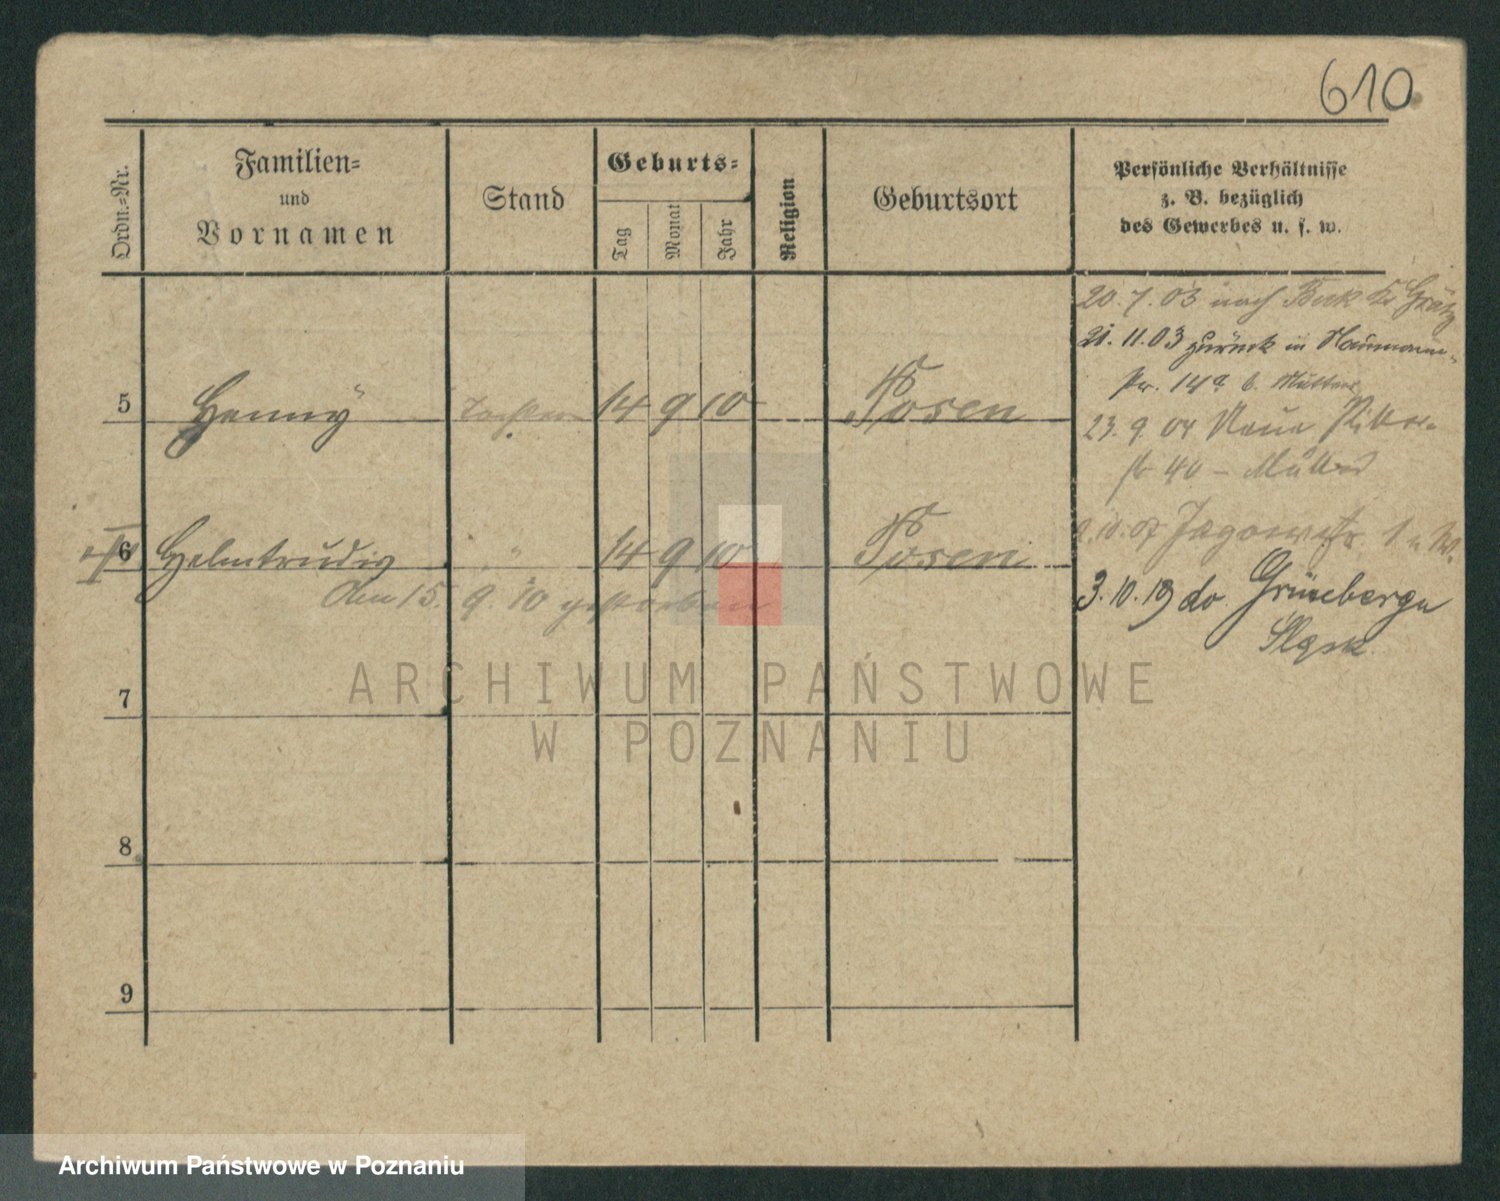 610
Ordn.-Nr.
Familien-
und
Vornamen
Stand
Geburts-
Tag
Monat
Jahr
Religion
Geburtsort
Persönliche Verhältnisse
z. B. bezüglich
des Gewerbes u. s. w.
5 Henny Tochter 14 9 10 Posen
6 Helmtrudis " 14 9 10 Posen
Am 15. 9. 10 gestorben
7
8
9
20.7.03 nach Buk Kr Grätz
21.11.03 zurück in Naumann-
str. 14a b. Mutter
23.9.04 Neue
str 40 –
Jagowstr 1
3.10.19 do Grüneberg
Śląsk
ARCHIWUM PAŃSTWOWE
W POZNANIU
Archiwum Państwowe w Poznaniu